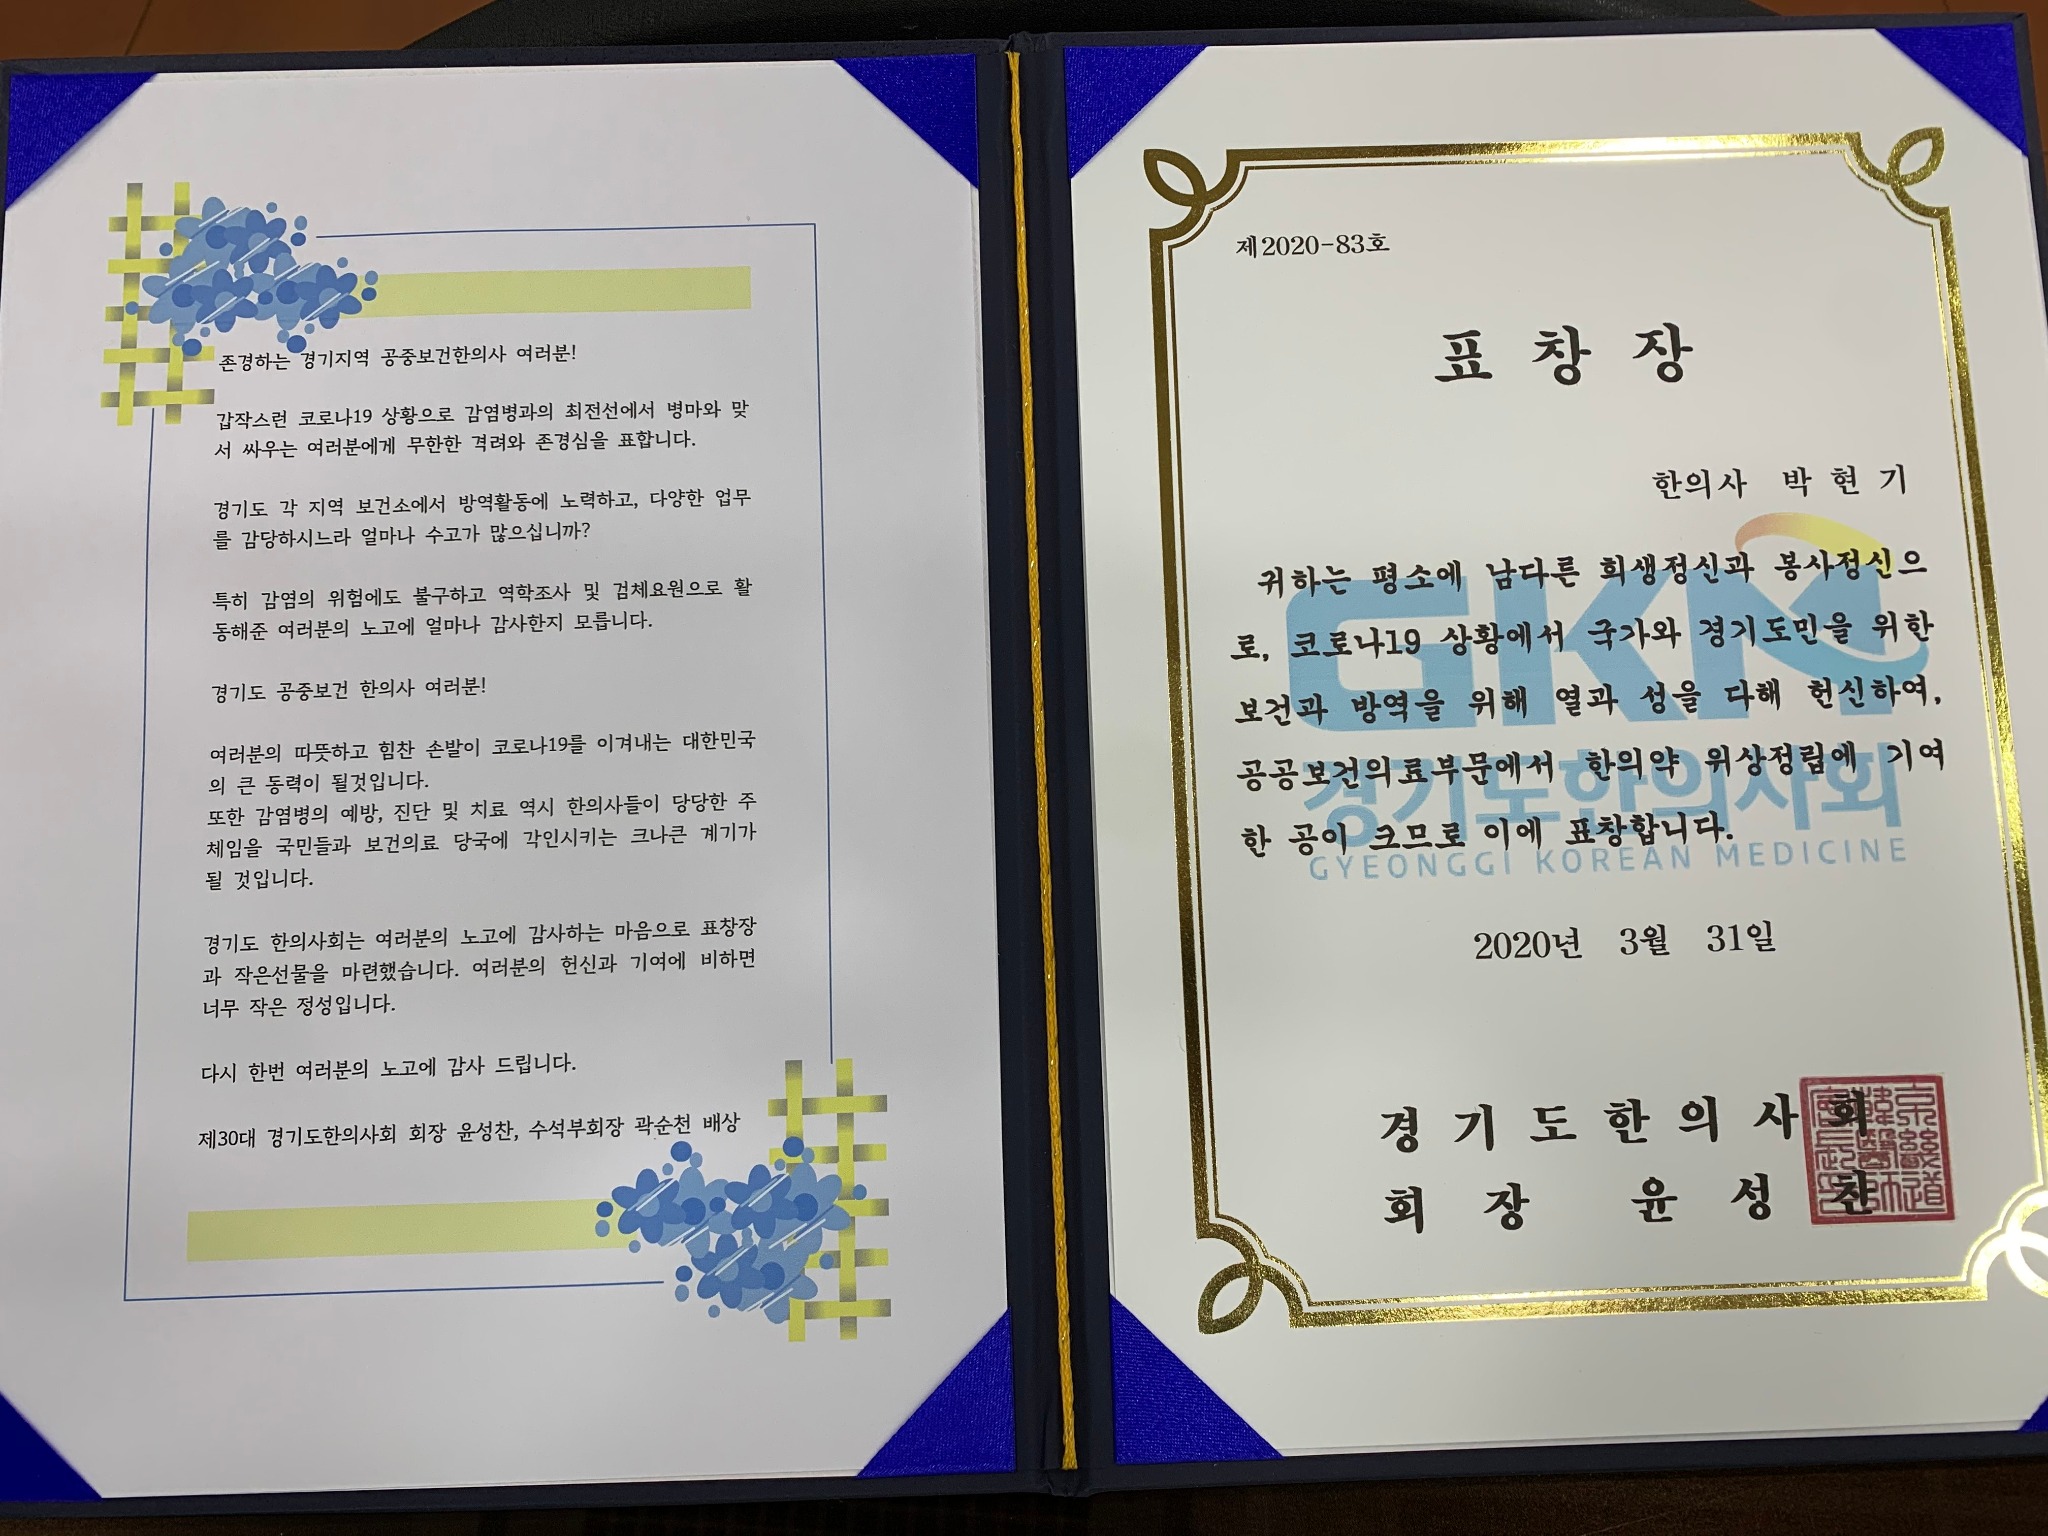 존경하는 경기지역 공중보건한의사 여러분!
갑작스런 코로나19 상황으로 감염병과의 최전선에서 병마와 맞
서 싸우는 여러분에게 무한한 격려와 존경심을 표합니다.
경기도 각 지역 보건소에서 방역활동에 노력하고, 다양한 업무
를 감당하시느라 얼마나 수고가 많으십니까?
특히 감염의 위험에도 불구하고 역학조사 및 검체요원으로 활
동해준 여러분의 노고에 얼마나 감사한지 모릅니다.
경기도 공중보건 한의사 여러분!
여러분의 따뜻하고 힘찬 손발이 코로나19를 이겨내는 대한민국
의 큰 동력이 될것입니다.
또한 감염병의 예방, 진단 및 치료 역시 한의사들이 당당한 주
체임을 국민들과 보건의료 당국에 각인시키는 크나큰 계기가
될 것입니다.
경기도 한의사회는 여러분의 노고에 감사하는 마음으로 표창장
과 작은선물을 마련했습니다. 여러분의 헌신과 기여에 비하면
너무 작은 정성입니다.
다시 한번 여러분의 노고에 감사 드립니다.
제30대 경기도한의사회 회장 윤성찬, 수석부회장 곽순천 배상
제2020-83호
표 창 장
한의사 박 현 기
귀하는 평소에 남다른 희생정신과 봉사정신으
로, 코로나19 상황에서 국가와 경기도민을 위한
보건과 방역을 위해 열과 성을 다해 헌신하여,
공공보건의료부문에서 한의약 위상정립에 기여
한 공이 크므로 이에 표창합니다.
GKM
경기도한의사회
GYEONGGI KOREAN MEDICINE
2020년 3월 31일
경 기 도 한 의 사 회
회 장 윤 성 찬